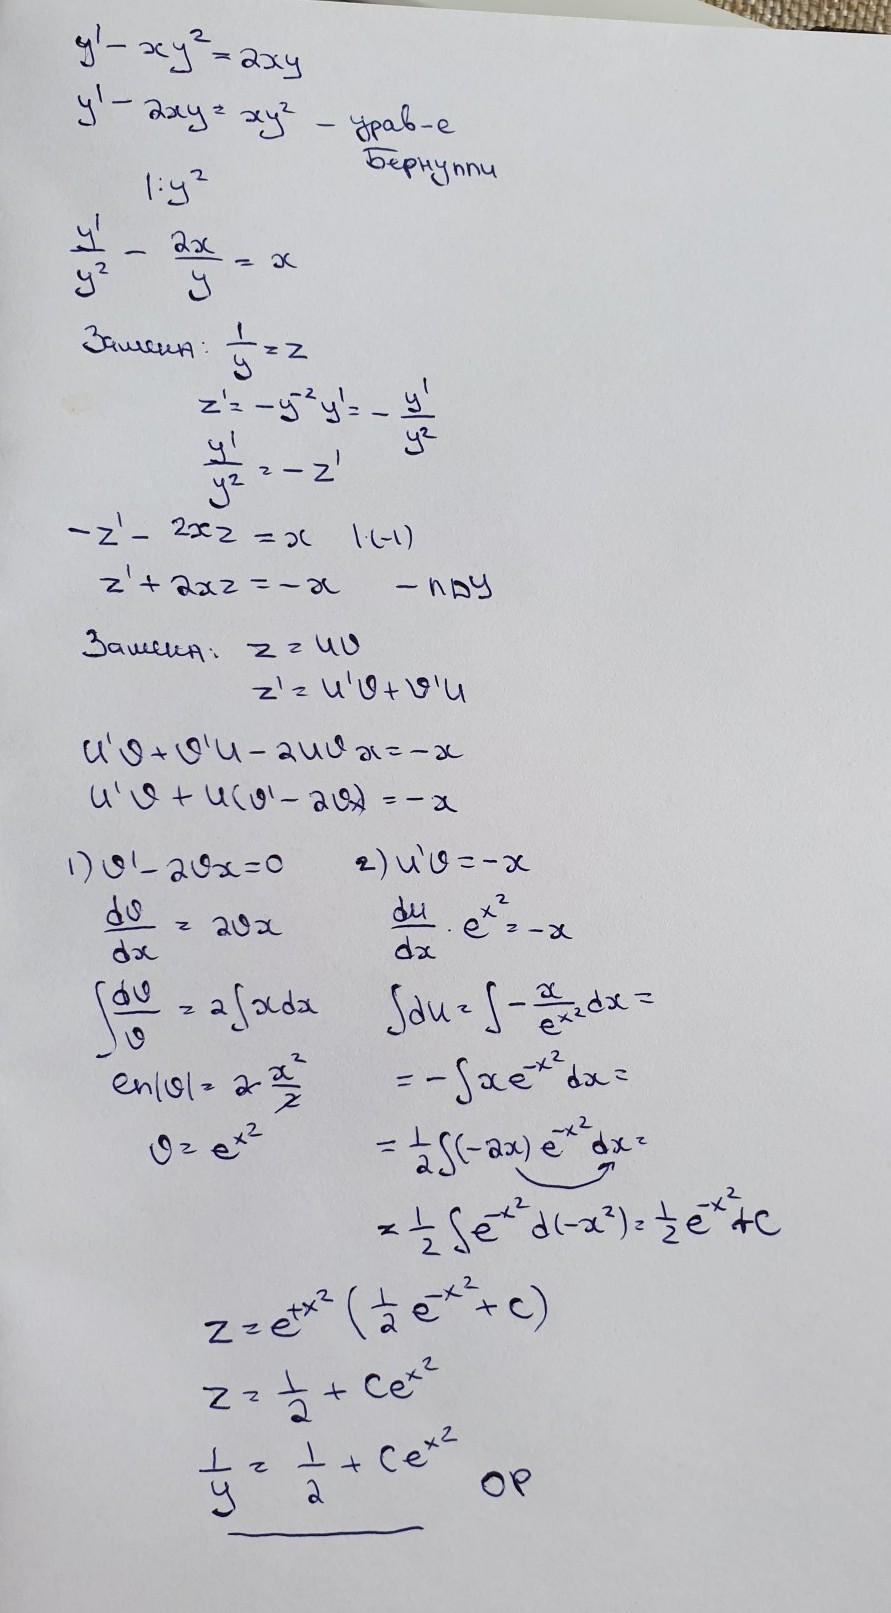 y' - xy² = 2xy
y' - 2xy = xy² - урав-е
Бернулли
|:y²
y'/y² - 2x/y = x
Замена: 1/y = z
z' = -y⁻²y' = - y'/y²
y'/y² = -z'
-z' - 2xz = x |·(-1)
z' + 2xz = -x - ЛДУ
Замена: z = uv
z' = u'v + v'u
u'v + v'u - 2uvx = -x
u'v + u(v' - 2vx) = -x
1) v' - 2vx = 0 2) u'v = -x
dv/dx = 2vx du/dx · e^(x²) = -x
∫dv/v = 2∫xdx ∫du = ∫ - x/e^(x²) dx =
ln|v| = 2·x²/2 = -∫xe^(-x²)dx =
v = e^(x²) = 1/2 ∫(-2x)e^(-x²)dx =
= 1/2 ∫e^(-x²)d(-x²) = 1/2 e^(-x²) + C
z = e^(+x²)(1/2 e^(-x²) + C)
z = 1/2 + Ce^(x²)
1/y = 1/2 + Ce^(x²) ОР